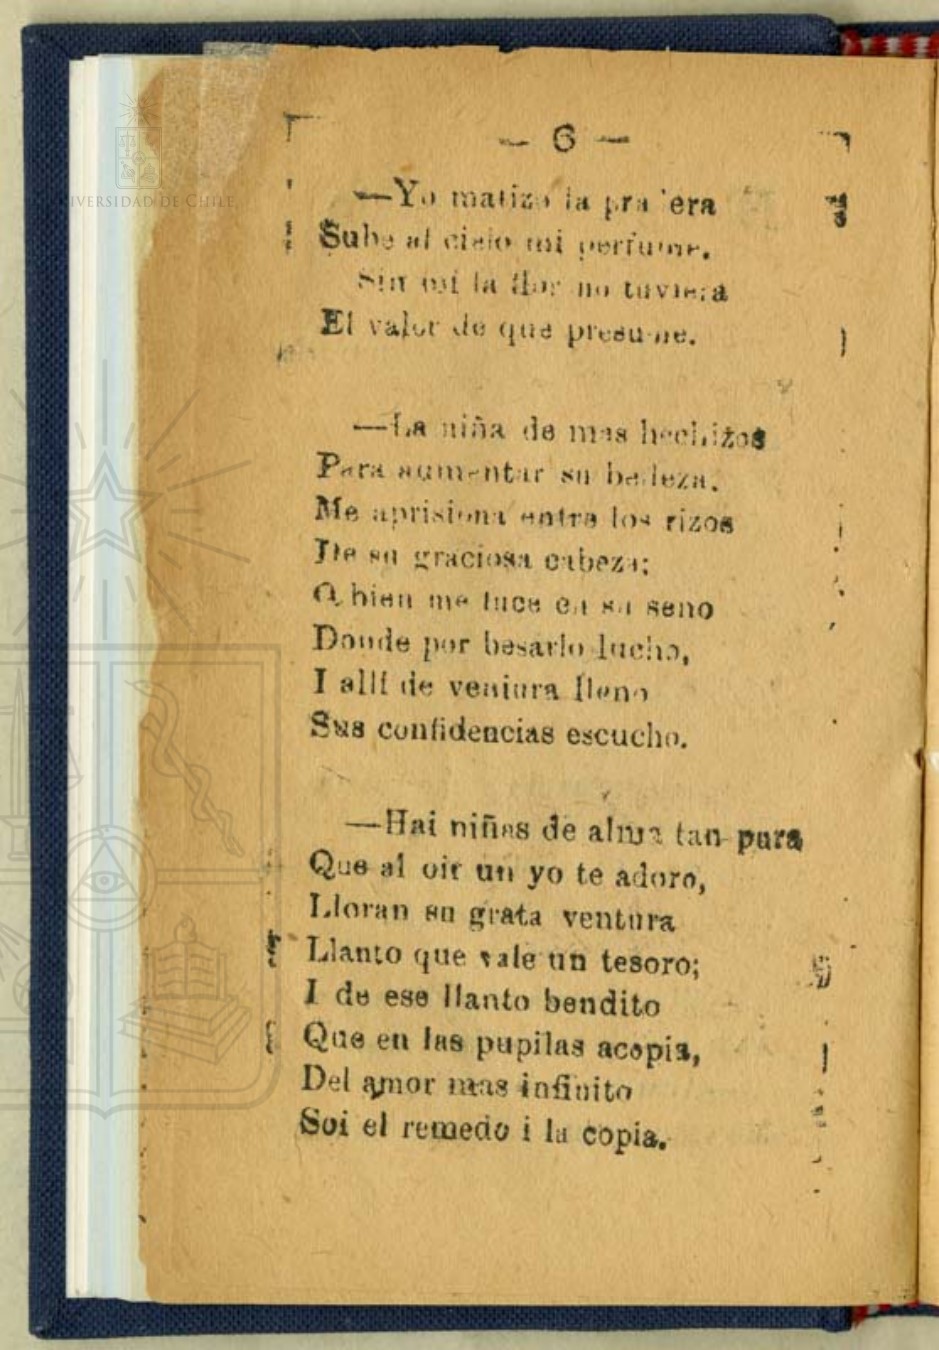 — 6 —
—Yo matizo la pradera
Sube al cielo mi perfume.
Sin mí la flor no tuviera
El valor de que presume.
—La niña de mas hechizos
Para aumentar su belleza.
Me aprisiona entre los rizos
De su graciosa cabeza;
O bien me luce en su seno
Donde por besarlo lucho,
I allí de ventura lleno
Sus confidencias escucho.
—Hai niñas de alma tan pura
Que al oir un yo te adoro,
Lloran su grata ventura
Llanto que vale un tesoro;
I de ese llanto bendito
Que en las pupilas acopia,
Del amor mas infinito
Soi el remedo i la copia.
UNIVERSIDAD DE CHILE